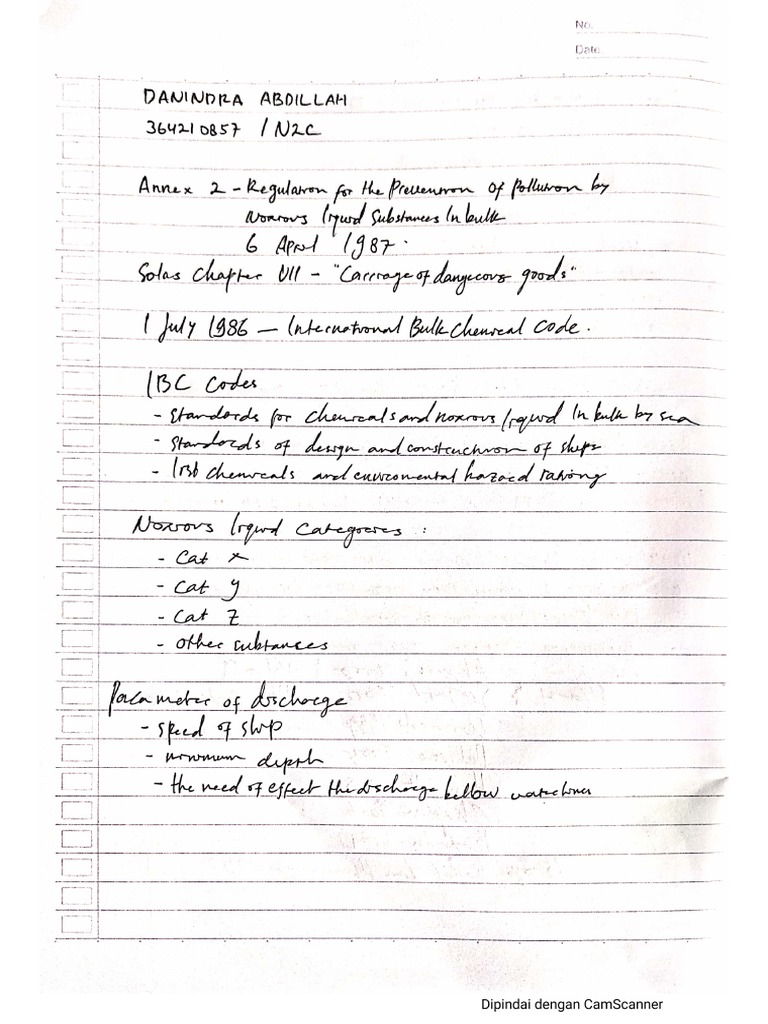 No.
Date
DANINDRA ABDILLAH
364210857 / N2C
Annex 2 - Regulation for the Prevention of Pollution by
Noxious liquid Substances In bulk
6 April 1987.
Solas Chapter VII - "Carriage of dangerous goods"
1 July 1986 — International Bulk Chemical Code.
IBC Codes
- Standards for chemicals and noxious liquid In bulk by sea
- Standards of design and construction of ships
- list chemicals and enviromental hazard rating
Noxious liquid Categories :
- Cat x
- Cat y
- Cat z
- Other subtances
Parameter of discharge
- speed of ship
- minimum depth
- the need of effect the discharge bellow waterlines
Dipindai dengan CamScanner